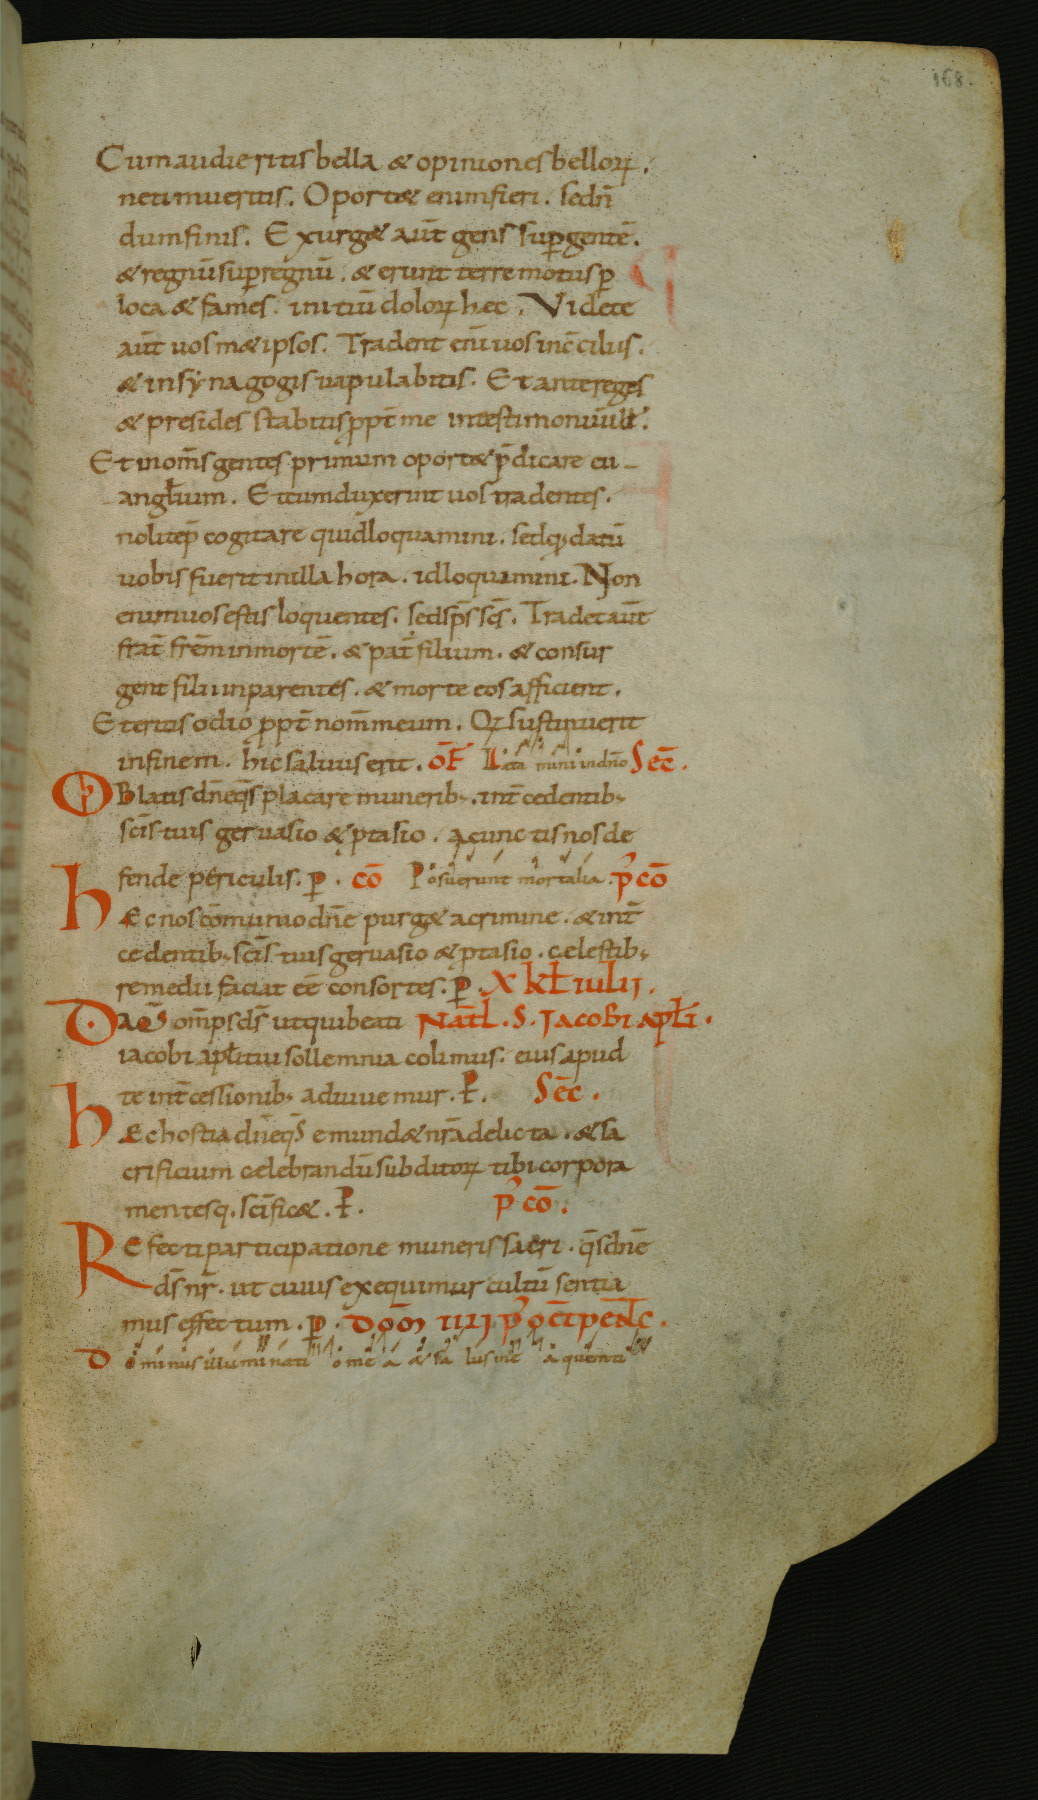 168.
Cum audieritis bella & opiniones belloꝝ.
ne timueritis. Oport& enim fieri. sed n̄
dum finis. Exurg& aut̄ gens sup gentē.
& regnū sup regnū. & erunt terre motus ꝑ
loca & fames. initiū doloꝝ hec. Videte
aut̄ uos m&ipsos. Tradent eni uos in c̄ciliis.
& in synagogis uapulabitis. Et ante reges
& presides stabitis ꝓpt̄ me in testimoniū ill'.
Et in om̄s gentes primum oport& p̄dicare eu
angłium. Et cum duxerint uos tradentes.
nolite p̄cogitare quid loquamini. sed qd datū
uobis fuerit in illa hora. id loquimini. Non
enim uos estis loquentes. sed sp̄s sc̄s. Tradet aut̄
frat̄ frēm in mortē. & pat̄ filium. & consur
gent filii in parentes. & morte eos afficient.
Et eritis odio ꝓpt̄ nom̄ meum. Qꝝ sustinuerit
in finem. hic saluus erit. of̄ Lætamini in dn̄o Sec̄.
OBlatis dn̄e qs̄ placare munerib; . int̄cedentib;
scīs tuis geruasio & ꝓtasio. a cunctis nos de
fende periculis. ꝑ. cō Posuerunt mortalia. p̄ cō
hÆc nos cōmunio dn̄e purg& a crimine. & int̄
cedentib; scīs tuis geruasio & ꝓtasio. celestib;
remedii faciat eē consortes. ꝑ. X kł iulii.
Da qs̄ omps ds̄ ut qui beati Natł. S. Jacobi apłi.
iacobi apłi tui sollemnia colimus. eius apud
te int̄cessionib; adiuuemur. P. Sec̄.
hÆc hostia dn̄e qs̄ emund& nrā delicta. & sa
crificium celebrandū subditoꝝ tibi corpora
mentesq. scīfic&. P. p̄ cō.
Refecti participatione muneris sacri. qs̄ dn̄e
ds̄ nr̄. ut cuius exequimur cultū sentia
mus effectum. ꝑ. Dom̄ IIII p̄ oct̄ pent̄c.
Dominus illuminatio mea & salus mea quem ti